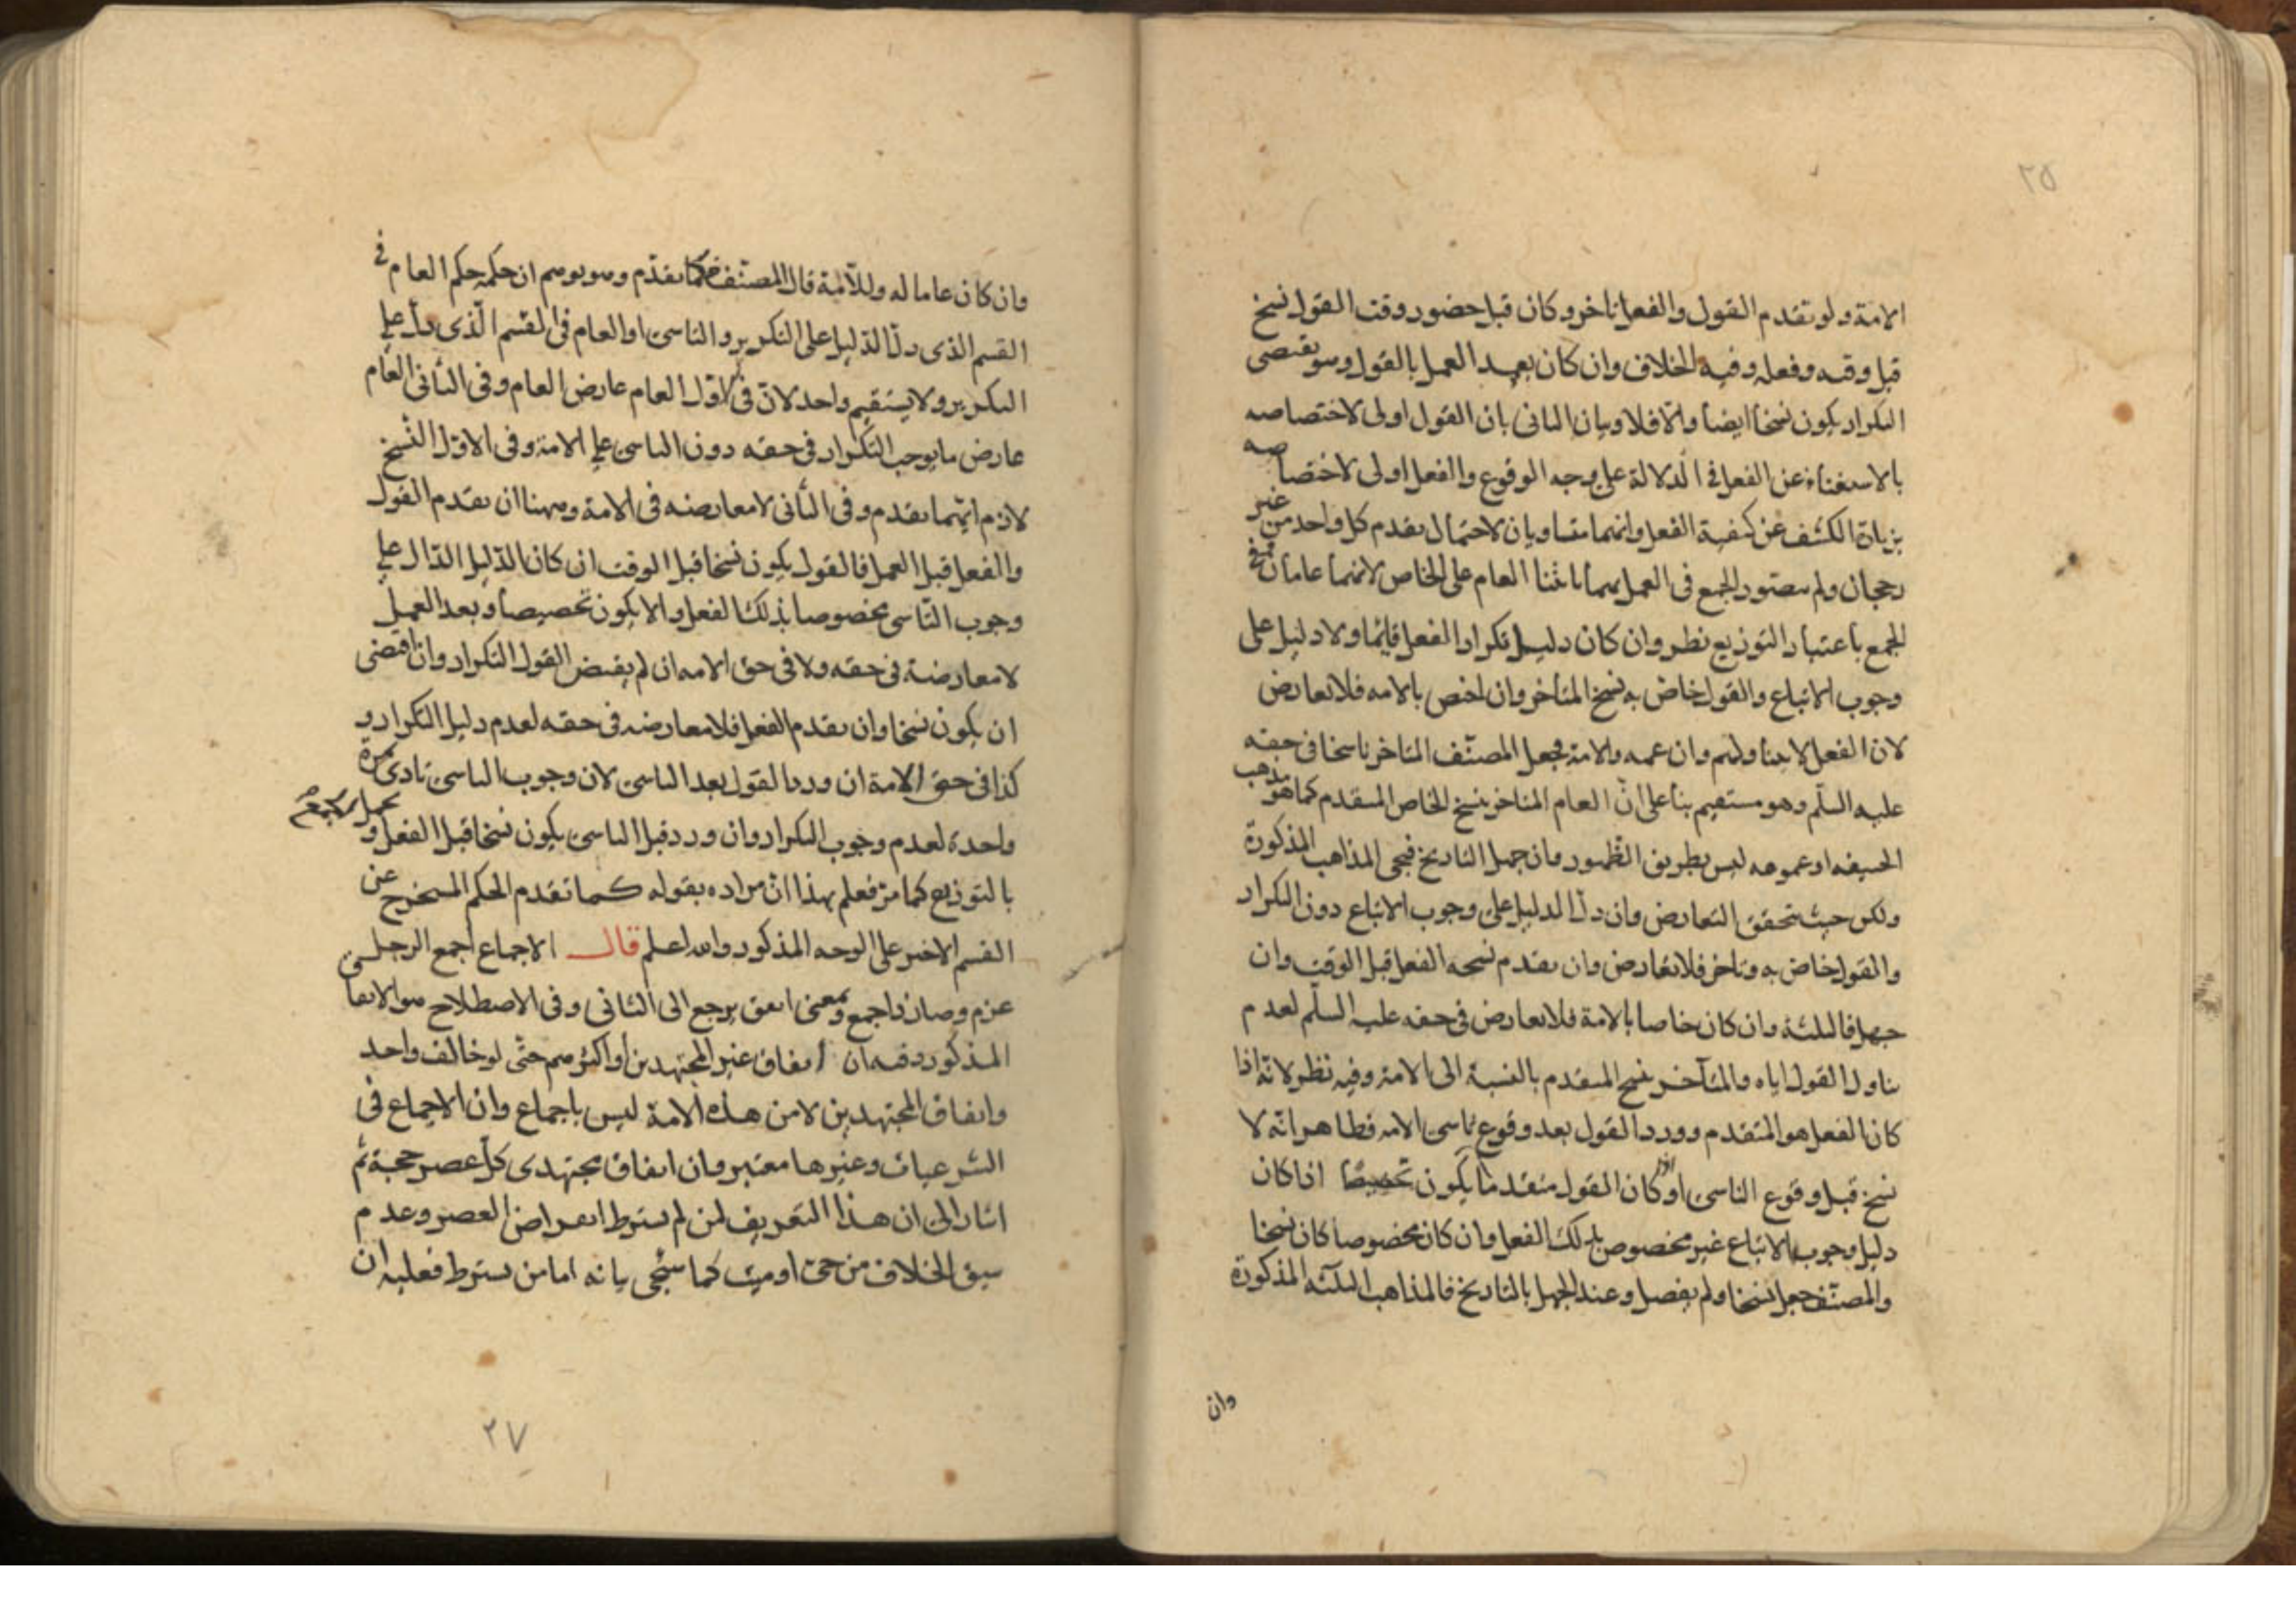 ٢٥
الامة ولو تقدم القول والفعل تاخر وكان قبل حضور وقت القول نسخ
قبل وقته وفعله وفيه الخلاف وان كان بعد العمل بالقول وهو يقتضى
التكرار يكون نسخا ايضا والا فلا وبيان الثانى بان القول اولى لاختصاصه
بالاستغناء عن الفعل فى الدلالة على وجه الوقوع والفعل اولى لاختصاصه
بزيادة الكشف عن كيفية الفعل وانهما متساويان لاحتمال تقدم كل واحد من غير
رجحان ولم يتصور الجمع فى العمل بهما بابتنا العام على الخاص لانهما عامان
الجمع باعتبار التوزيع نظر وان كان دليل تكرار الفعل قائما ولا دليل على
وجوب الاتباع والقول خاص به نسخ المتاخر وان اختص بالامه فلا تعارض
لان الفعل لا يتناولهم وان عمه والامة فجعل المصنف المتاخر ناسخا فى حقه
عليه السلم وهو مستقيم بنا على ان العام المتاخر ينسخ الخاص المتقدم كما هو مذهب
الحنيفه او عمومه ليس بطريق الظهور وان جهل التاريخ فيجى المذاهب المذكورة
ولكن حيث تحقق التعارض وان دل الدليل على وجوب الاتباع دون التكرار
والقول خاص به وتاخر فلا تعارض وان تقدم نسخه الفعل قبل الوقت وان
جهل فالثلثة وان كان خاصا بالامة فلا تعارض فى حقه عليه السلم لعدم
تناول القول اياه والمتآخر نسخ المتقدم بالنسبة الى الامة وفيه نظر لانه اذا
كان الفعل هو المتقدم وورد القول بعد وقوع تاسى الامه فظاهر انه لا
نسخ قبل وقوع التاسى او كان القول متقدما يكون تخصيصا اذا كان
دليل وجوب الاتباع غير مخصوص بذلك الفعل وان كان مخصوصا كان نسخا
والمصنف جعل نسخا ولم يفصل وعند الجهل بالتاريخ فالمذاهب الثلثه المذكورة
وان
وان كان عاما له وللامة قال المصنف كما تقدم وهو يوهم ان حكمه حكم العام فى
القسم الذى دل الدليل على التكرير والتاسى او العام فى القسم الذى دل على
التكرير ولا يستقيم واحد لان فى الاول العام عارض العام وفى الثانى العام
عارض ما يوجب التكرار فى حقه دون التاسى على الامة وفى الاول النسخ
لازم ايهما تقدم وفى الثانى لا معارضه فى الامة وههنا ان تقدم القول
والفعل قبل العمل فالقول يكون نسخا قبل الوقت ان كان الدليل الدال على
وجوب التاسى مخصوصا بذلك الفعل والا يكون تخصيصا وبعد العمل
لا معارضة فى حقه ولا فى حق الامه ان لم يقتض القول التكرار وان اقتضى
ان يكون نسخا وان تقدم الفعل فلا معارضه فى حقه لعدم دليل التكرار و
كذا فى حق الامة ان ورد القول بعد التاسى لان وجوب التاسى تادى مرة
واحدة لعدم وجوب التكرار وان ورد قبل التاسى يكون نسخا قبل الفعل و
يحمل الجمع
بالتوزيع كما مر فعلم بهذا ان مراده بقوله كما تقدم الحكم المستخرج عن
القسم الاخير على الوجه المذكور والله اعلم قال الاجماع اجمع الرجل
عزم وصار ذا جمع وبمعنى اتفق يرجع الى الثانى وفى الاصطلاح هو الاتفا
المذكور دفه ان اتفاق غير المجتهدين او اكثرهم حتى لو خالف واحد
واتفاق المجتهدين لا من هذه الامة ليس باجماع وان الاجماع فى
الشرعيات وغيرها معتبر وان اتفاق مجتهدى كل عصر حجة ثم
اشار الى ان هذا التعريف لمن لم يشترط انعراض العصر وعدم
سبق الخلاف من حى او ميت كما سيجى بيانه اما من يشترط فعليه ان
٢٧